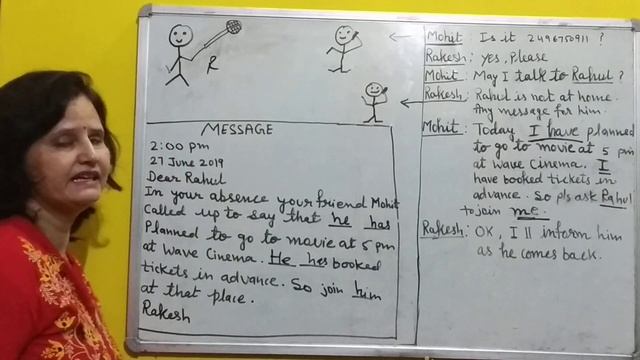 R
MESSAGE
2:00 pm
27 June 2019
Dear Rahul
In your absence your friend Mohit
Called up to say that he has
Planned to go to movie at 5 pm
at Wave Cinema. He has booked
tickets in advance. So join him
at that place.
Rakesh
Mohit: Is it 2496750911 ?
Rakesh: Yes, Please
Mohit: May I talk to Rahul ?
Rakesh: Rahul is not at home.
Any message for him.
Mohit: Today I have planned
to go to movie at 5 pm
at Wave Cinema. I
have booked tickets in
advance. So pls ask Rahul
to join me.
Rakesh: OK, I ll inform him
as he comes back.